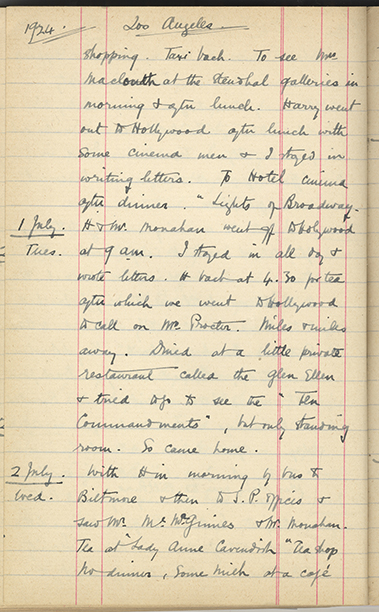 1924. Los Angeles
shopping. Taxi back. To see Mrs
at the Stendhal galleries in
morning & after lunch. Harry went
out to Hollywood after lunch with
some cinema men & I stayed in
writing letters. To Hotel cinema
after dinner. "Lights of Broadway.
1 July. H & Mr. Monahan went off to Hollywood
Tues. at 9 am. I stayed in all day &
wrote letters. H back at 4.30 for tea
after which we went to Hollywood
to call on Mrs Proctor. Miles & miles
away. Dined at a little private
restaurant called the Glen Ellen
& tried to go to see the "Ten
Commandments", but only standing
room. So came home.
2 July. With H in morning by bus to
Wed. Biltmore & then to S.P. offices &
saw Mr. McGinnes & Mr. Monahan.
Tea at "Lady Anne Cavendish" Tea shop
No dinner, some milk at a café